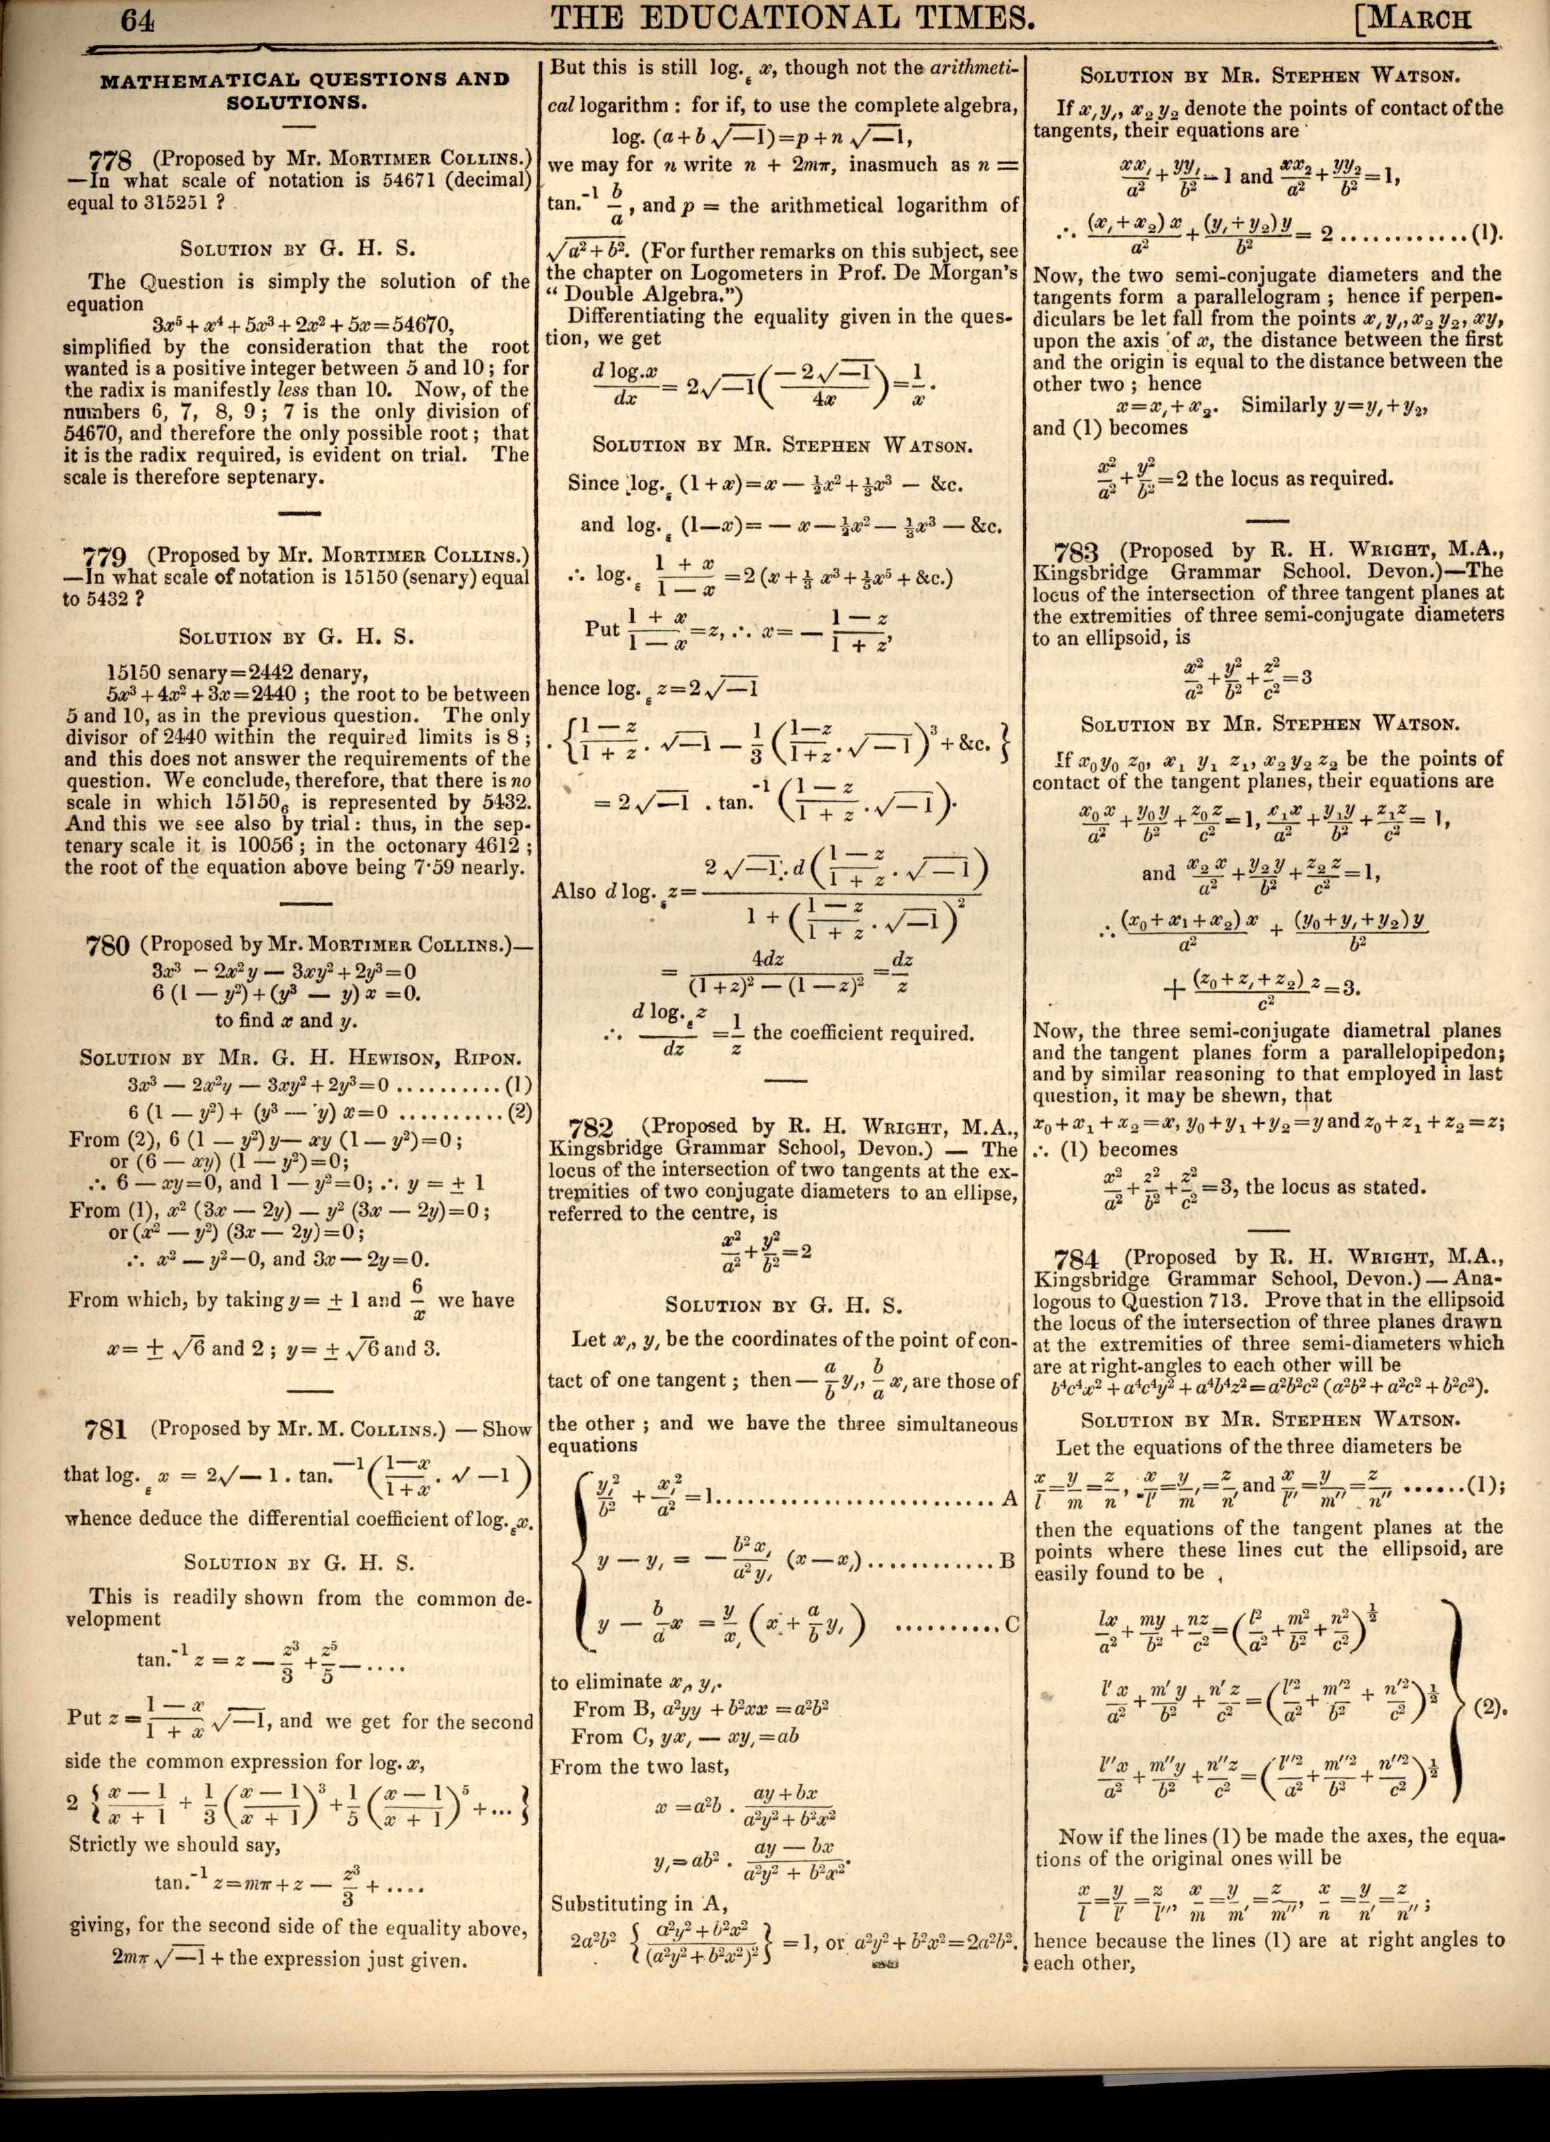 64
THE EDUCATIONAL TIMES.
[MARCH
MATHEMATICAL QUESTIONS AND
SOLUTIONS.
778 (Proposed by Mr. MORTIMER COLLINS.)
—In what scale of notation is 54671 (decimal)
equal to 315251 ?
SOLUTION BY G. H. S.
The Question is simply the solution of the
equation
3x⁵ + x⁴ + 5x³ + 2x² + 5x=54670,
simplified by the consideration that the root
wanted is a positive integer between 5 and 10; for
the radix is manifestly less than 10. Now, of the
numbers 6, 7, 8, 9; 7 is the only division of
54670, and therefore the only possible root; that
it is the radix required, is evident on trial. The
scale is therefore septenary.
779 (Proposed by Mr. MORTIMER COLLINS.)
—In what scale of notation is 15150 (senary) equal
to 5432 ?
SOLUTION BY G. H. S.
15150 senary=2442 denary,
5x³ + 4x² + 3x=2440 ; the root to be between
5 and 10, as in the previous question. The only
divisor of 2440 within the required limits is 8 ;
and this does not answer the requirements of the
question. We conclude, therefore, that there is no
scale in which 15150₆ is represented by 5432.
And this we see also by trial : thus, in the sep-
tenary scale it is 10056 ; in the octonary 4612 ;
the root of the equation above being 7·59 nearly.
780 (Proposed by Mr. MORTIMER COLLINS.)—
3x³ − 2x²y − 3xy² + 2y³=0
6 (1 − y²)+(y³ − y) x =0.
to find x and y.
SOLUTION BY MR. G. H. HEWISON, RIPON.
3x³ − 2x²y − 3xy² + 2y³=0 ..........(1)
6 (1 − y²) + (y³ − y) x=0 ..........(2)
From (2), 6 (1 − y²) y− xy (1 − y²)=0 ;
or (6 − xy) (1 − y²)=0;
∴ 6 − xy=0, and 1 − y²=0; ∴ y = ± 1
From (1), x² (3x − 2y) − y² (3x − 2y)=0 ;
or (x² − y²) (3x − 2y)=0 ;
∴ x² − y²−0, and 3x − 2y=0.
From which, by taking y= ± 1 and 6/x we have
x= ± √6 and 2 ; y= ± √6 and 3.
781 (Proposed by Mr. M. COLLINS.) — Show
that log.ε x = 2√− 1 . tan.⁻¹(1−x/1+x . √ −1)
whence deduce the differential coefficient of log.ε x.
SOLUTION BY G. H. S.
This is readily shown from the common de-
velopment
tan.⁻¹ z = z − z³/3 + z⁵/5 − ....
Put z = 1 − x/1 + x √−1, and we get for the second
side the common expression for log. x,
2 {x − 1/x + 1 + 1/3 (x − 1/x + 1)³ + 1/5 (x − 1/x + 1)⁵ + ... }
Strictly we should say,
tan.⁻¹ z=mπ + z − z³/3 + ....
giving, for the second side of the equality above,
2mπ √−1 + the expression just given.
But this is still log.ε x, though not the arithmeti-
cal logarithm : for if, to use the complete algebra,
log. (a + b √−1)=p + n √−1,
we may for n write n + 2mπ, inasmuch as n =
tan.⁻¹ b/a , and p = the arithmetical logarithm of
√a² + b². (For further remarks on this subject, see
the chapter on Logometers in Prof. De Morgan's
“ Double Algebra.”)
Differentiating the equality given in the ques-
tion, we get
d log.x/dx = 2√−1(−2√−1/4x)=1/x.
SOLUTION BY MR. STEPHEN WATSON.
Since log.ε (1 + x)=x − ½x² + ⅓x³ − &c.
and log.ε (1−x)= − x − ½x² − ⅓x³ − &c.
∴ log.ε 1 + x/1 − x =2 (x + ⅓ x³ + ⅕x⁵ + &c.)
Put 1 + x/1 − x =z, ∴ x= − 1 − z/1 + z,
hence log.ε z=2√−1
. {1 − z/1 + z . √−1 − 1/3 (1−z/1+z . √−1)³ + &c. }
= 2√−1 . tan.⁻¹ (1 − z/1 + z . √−1).
Also d log.ε z= 2 √−1. d(1 − z/1 + z . √−1)/1 + (1 − z/1 + z . √−1)²
= 4dz/(1+z)² − (1 − z)² = dz/z
∴ d log.ε z/dz = 1/z the coefficient required.
782 (Proposed by R. H. WRIGHT, M.A.,
Kingsbridge Grammar School, Devon.) — The
locus of the intersection of two tangents at the ex-
tremities of two conjugate diameters to an ellipse,
referred to the centre, is
x²/a² + y²/b² = 2
SOLUTION BY G. H. S.
Let x,, y, be the coordinates of the point of con-
tact of one tangent ; then − a/b y,, b/a x, are those of
the other ; and we have the three simultaneous
equations
y,²/b² + x,²/a² = 1............................ A
y − y, = − b² x,/a² y, (x − x,) ............ B
y − b/a x = y/x, (x + a/b y,) .......... C
to eliminate x,, y,.
From B, a²yy + b²xx = a²b²
From C, yx, − xy,=ab
From the two last,
x =a²b . ay + bx/a²y² + b²x²
y,=ab² . ay − bx/a²y² + b²x².
Substituting in A,
2a²b² {a²y² + b²x²/(a²y² + b²x²)²} = 1, or a²y² + b²x²=2a²b².
SOLUTION BY MR. STEPHEN WATSON.
If x,y,, x₂ y₂ denote the points of contact of the
tangents, their equations are
xx,/a² + yy,/b² − 1 and xx₂/a² + yy₂/b² = 1,
∴ (x, + x₂) x/a² + (y, + y₂) y/b² = 2 .............(1).
Now, the two semi-conjugate diameters and the
tangents form a parallelogram ; hence if perpen-
diculars be let fall from the points x, y,, x₂ y₂, xy,
upon the axis of x, the distance between the first
and the origin is equal to the distance between the
other two ; hence
x=x, + x₂. Similarly y=y, + y₂,
and (1) becomes
x²/a² + y²/b² = 2 the locus as required.
783 (Proposed by R. H. WRIGHT, M.A.,
Kingsbridge Grammar School. Devon.)—The
locus of the intersection of three tangent planes at
the extremities of three semi-conjugate diameters
to an ellipsoid, is
x²/a² + y²/b² + z²/c² = 3
SOLUTION BY MR. STEPHEN WATSON.
If x₀y₀ z₀, x₁ y₁ z₁, x₂ y₂ z₂ be the points of
contact of the tangent planes, their equations are
x₀x/a² + y₀y/b² + z₀z/c² = 1, x₁x/a² + y₁y/b² + z₁z/c² = 1,
and x₂x/a² + y₂y/b² + z₂z/c² = 1,
∴ (x₀ + x₁ + x₂) x/a² + (y₀ + y, + y₂) y/b²
+ (z₀ + z, + z₂) z/c² = 3.
Now, the three semi-conjugate diametral planes
and the tangent planes form a parallelopipedon;
and by similar reasoning to that employed in last
question, it may be shewn, that
x₀ + x₁ + x₂ = x, y₀ + y₁ + y₂ = y and z₀ + z₁ + z₂ = z;
∴ (1) becomes
x²/a² + z²/b² + z²/c² = 3, the locus as stated.
784 (Proposed by R. H. WRIGHT, M.A.,
Kingsbridge Grammar School, Devon.) — Ana-
logous to Question 713. Prove that in the ellipsoid
the locus of the intersection of three planes drawn
at the extremities of three semi-diameters which
are at right-angles to each other will be
b⁴c⁴x² + a⁴c⁴y² + a⁴b⁴z² = a²b²c² (a²b² + a²c² + b²c²).
SOLUTION BY MR. STEPHEN WATSON.
Let the equations of the three diameters be
x/l = y/m = z/n, x/l′ = y/m′ = z/n′, and x/l″ = y/m″ = z/n″ ......(1);
then the equations of the tangent planes at the
points where these lines cut the ellipsoid, are
easily found to be
lx/a² + my/b² + nz/c² = (l²/a² + m²/b² + n²/c²)½
l′x/a² + m′y/b² + n′z/c² = (l′²/a² + m′²/b² + n′²/c²)½ (2).
l″x/a² + m″y/b² + n″z/c² = (l″²/a² + m″²/b² + n″²/c²)½
Now if the lines (1) be made the axes, the equa-
tions of the original ones will be
x/l = y/l′ = z/l″, x/m = y/m′ = z/m″, x/n = y/n′ = z/n″ ;
hence because the lines (1) are at right angles to
each other,